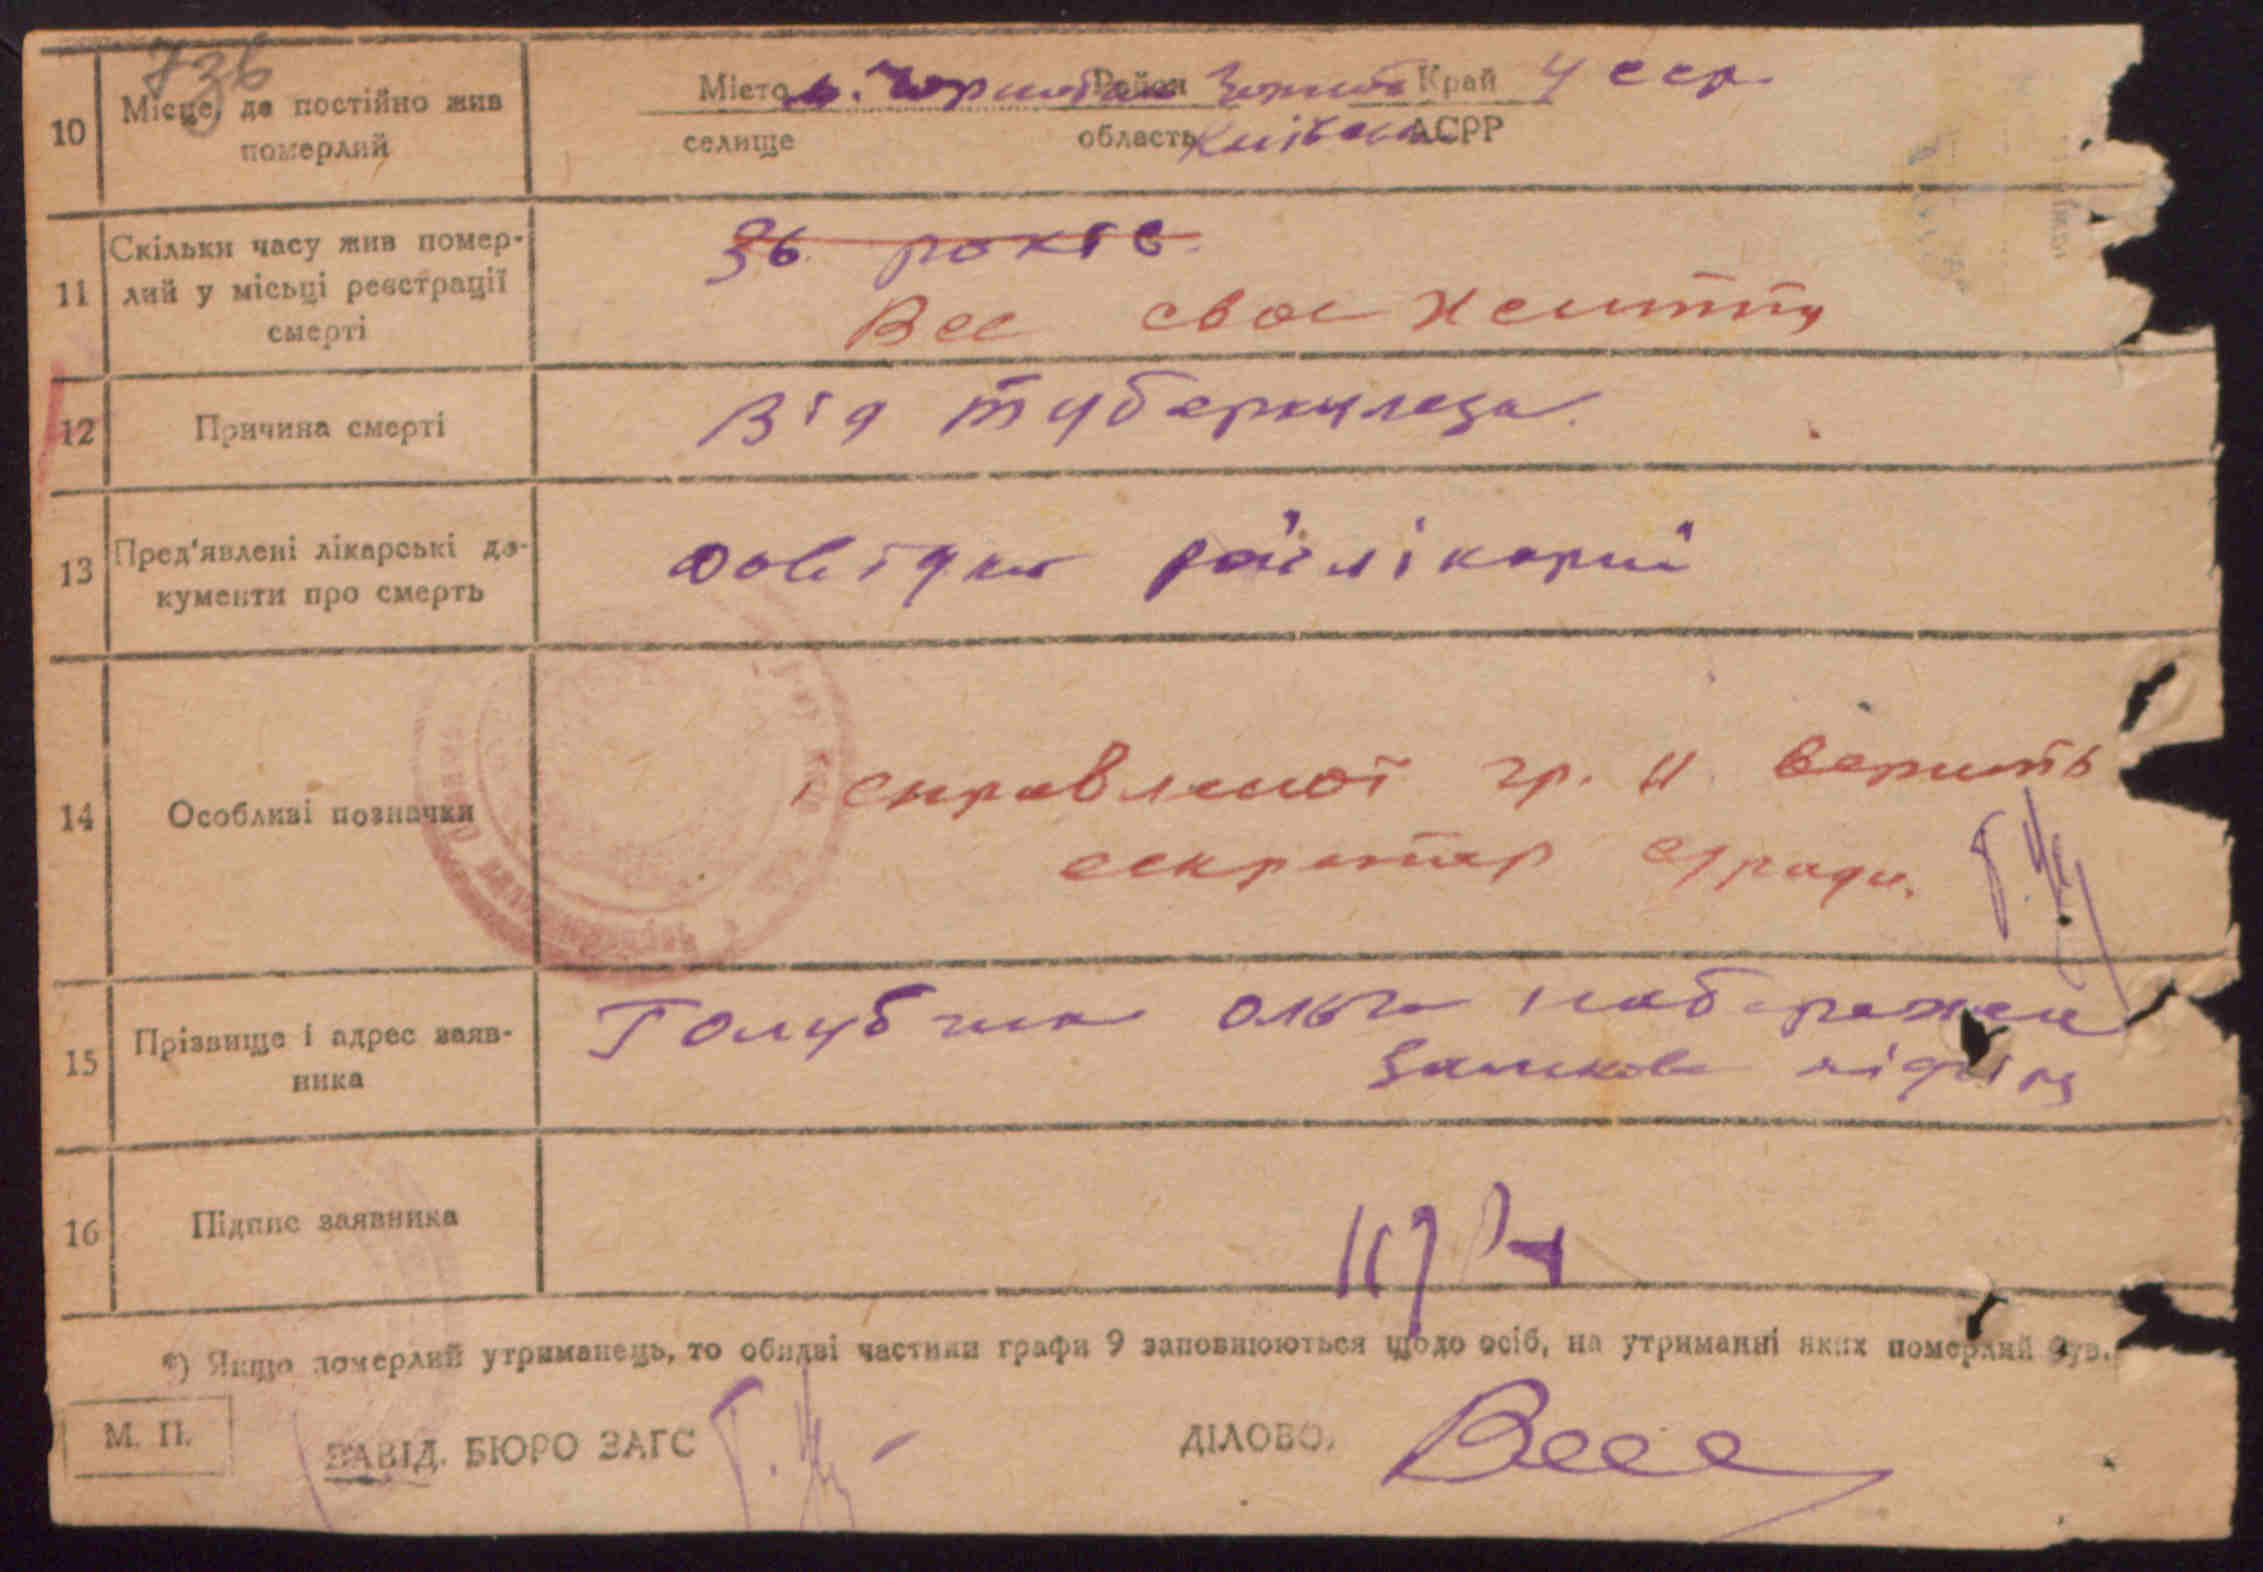 736
10 Місце, де постійно жив померлий
Місто м. Чорнобиль Район Чорноб Край УССР.
селище область Київська АСРР
11 Скільки часу жив помер-
лий у місьці реєстрації
смерті
36 років.
Все своє життя
12 Причина смерті
Від туберкулеза.
13 Пред'явлені лікарські до-
кументи про смерть
Довідка райлікарні
14 Особливі позначки
справленої гр. 11 верить
секретар с/ради.
15 Прізвище і адрес заяв-
ника
Голубчик Ольга
16 Підпис заявника
*) Якщо померлий утриманець, то обидві частини графи 9 заповнюються щодо осіб, на утриманні яких померлий був.
М. П.
ЗАВІД. БЮРО ЗАГС
ДІЛОВО.